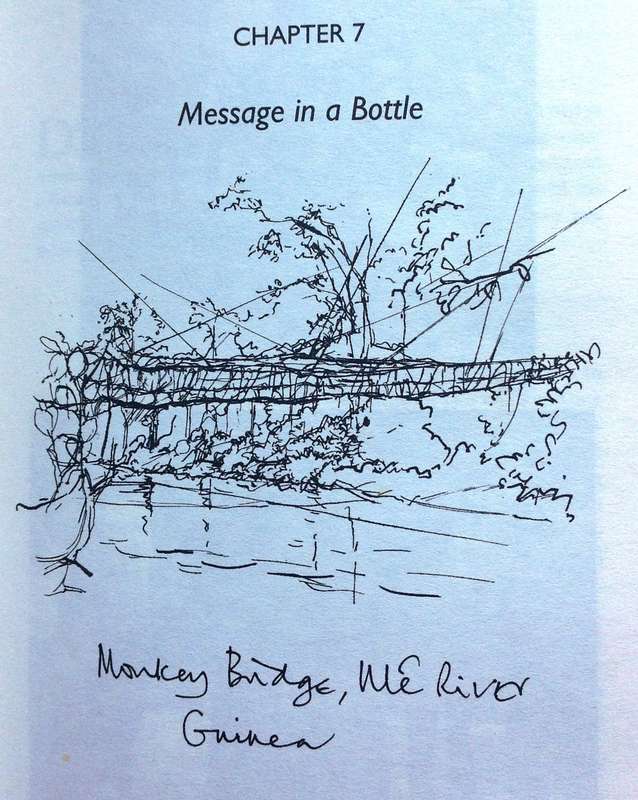 CHAPTER 7
Message in a Bottle
Monkey Bridge, Mé River
Guinea